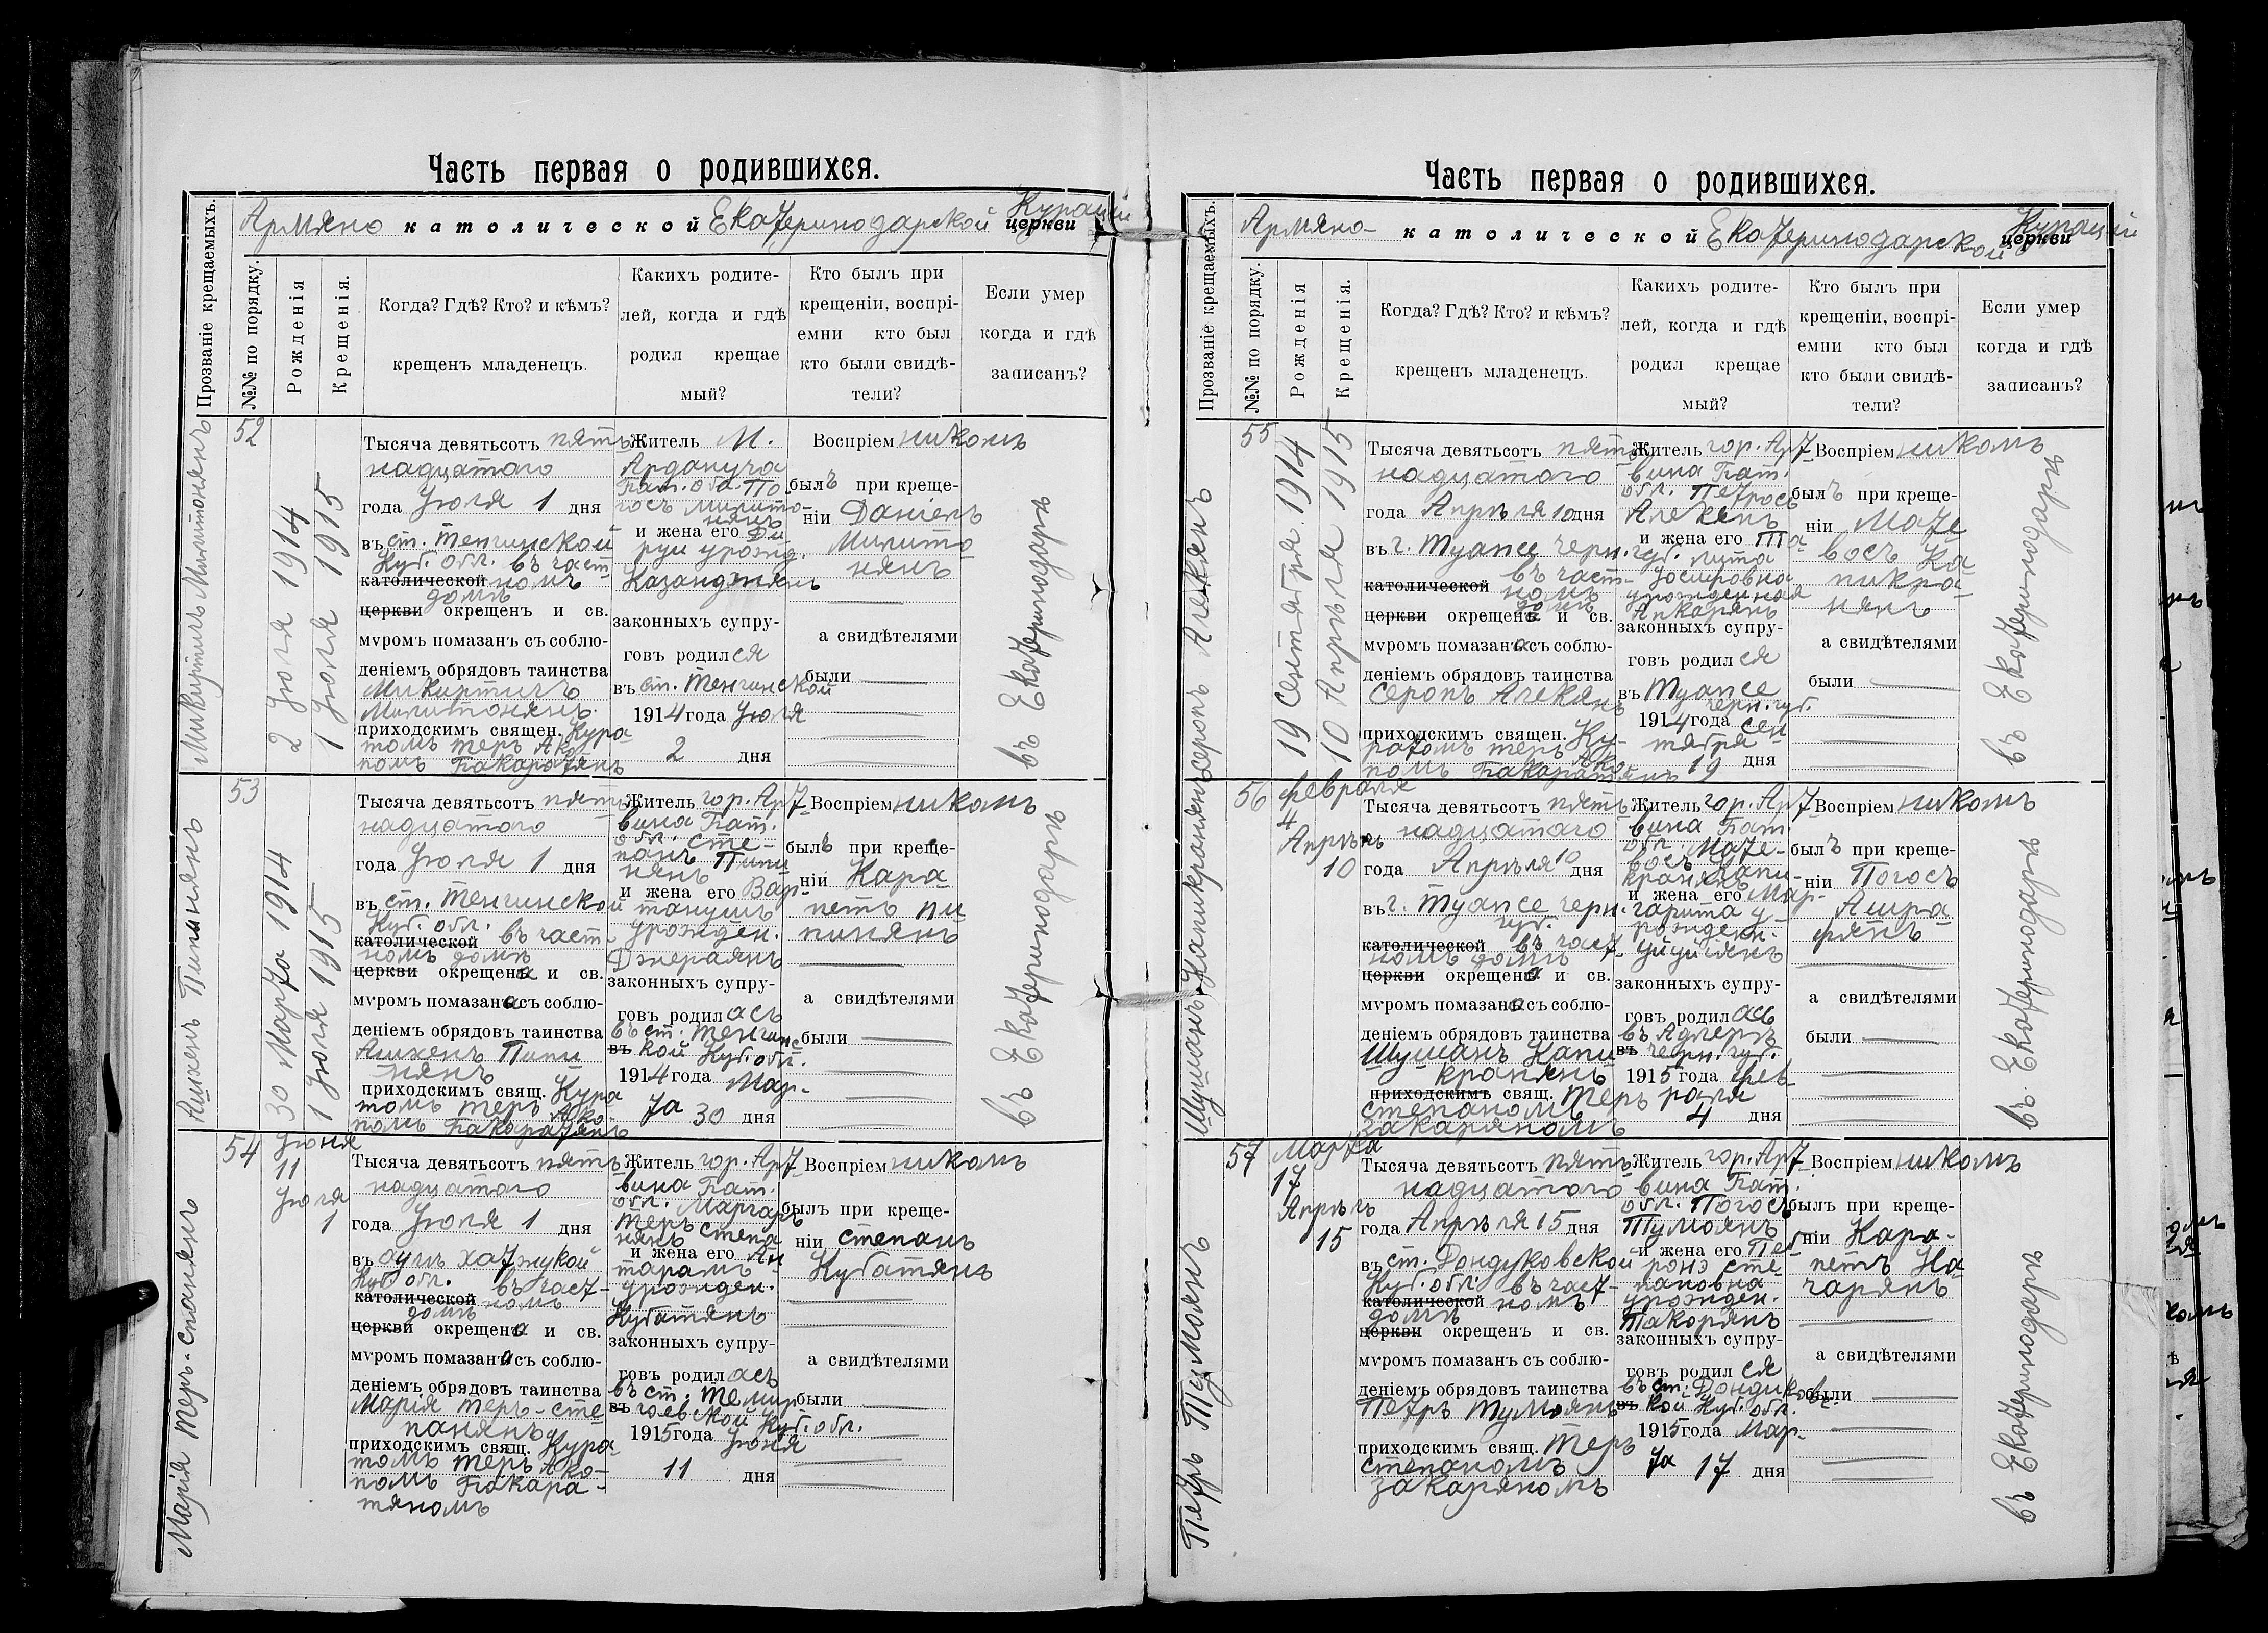 Часть первая о родившихся.
Армяно католической Екатеринодарской Курацiи церкви
Прозванiе крещаемыхъ.
№№ по порядку.
Рожденiя
Крещенiя.
Когда? Гдѣ? Кто? и кѣмъ?
крещенъ младенецъ.
Какихъ родите-
лей, когда и гдѣ
родил крещае
мый?
Кто былъ при
крещенiи, воспрi-
емни кто был
кто были свидѣ-
тели?
Если умер
когда и гдѣ
записанъ?
Микиртичъ Милитонянъ
52
2 Iюля 1914
1 Iюля 1915
Тысяча девятьсотъ пят
надцатого
года Iюля 1 дня
въ ст. Тенгинской
Куб. Обл. въ част
католической номъ
домѣ
церкви окрещенъ и св.
мѵромъ помазанъ съ соблю-
денiемъ обрядовъ таинства
Микиртичъ
Милитонянъ.
приходскимъ священ. Кура-
томъ теръ Ако-
помъ Бакаратянъ
Житель М.
Ардануча
Бат. обл. По-
госъ Милито-
нянъ
и жена его Фи
руи урожд.
Казанджянъ
законныхъ супру-
говъ родился
въ ст. Тенгинской
1914 года Iюля
2 дня
Воспрiемникомъ
былъ при креще-
нiи Данiелъ
Милито
нянъ
а свидѣтелями
были
въ Екатеринодарѣ
Ашхенъ Пипинянъ
53
30 Марта 1914
1 Iюля 1915
Тысяча девятьсотъ пят
надцатого
года Iюля 1 дня
въ ст. Тенгинской
Куб. обл.
католической въ част-
номъ домѣ
церкви окрещена и св.
мѵромъ помазана съ соблю-
денiемъ обрядовъ таинства
Ашхенъ Пипи
нянъ
приходскимъ свящ. Кура
томъ теръ Ако-
помъ Бакаратянъ
Житель гор. Арт
вина Бат.
обл. Сте-
панъ Пипи
нянъ
и жена его Вар-
танушъ
урожден.
Джераянъ
законныхъ супру-
говъ родилась
въ ст. Тенгинс
въ кой Куб. обл.
1914 года Мар-
та 30 дня
Воспрiемникомъ
былъ при креще-
нiи Кара
петъ Пи
пинянъ
а свидѣтелями
были
въ Екатеринодарѣ
Марiя Теръ-Степанянъ
54
Iюня
11
Iюля
1
Тысяча девятьсотъ пять
надцатого
года Iюля 1 дня
въ аулѣ Хатжукой
Куб. обл. въ част-
католической номъ
домѣ
церкви окрещена и св.
мѵромъ помазана съ соблю-
денiемъ обрядовъ таинства
Марiя Теръ-Сте
панянъ
приходскимъ свящ. Кура-
томъ теръ Ако-
помъ Бакара-
тяномъ
Житель гор. Арт
вина Бат.
обл. Маргаръ
Теръ Степа
нянъ
и жена его Ан
тарамъ
урожден.
Кубатянъ
законныхъ супру-
говъ родилась
въ ст. Темир-
въ гоевской Куб. обл.
1915 года Iюня
11 дня
Воспрiемникомъ
былъ при креще-
нiи Степанъ
Кубатянъ
а свидѣтелями
были
Часть первая о родившихся.
Армяно- католической Екатеринодарской Курацiи церкви
Прозванiе крещаемыхъ.
№№ по порядку.
Рожденiя
Крещенiя.
Когда? Гдѣ? Кто? и кѣмъ?
крещенъ младенецъ.
Какихъ родите-
лей, когда и гдѣ
родил крещае
мый?
Кто былъ при
крещенiи, воспрi-
емни кто был
кто были свидѣ-
тели?
Если умер
когда и гдѣ
записанъ?
Серопъ Алекянъ
55
19 Сентября 1914
10 Апрѣля 1915
Тысяча девятьсотъ пят
надцатого
года Апрѣля 10 дня
въ г. Туапсе Черн. губ.
католической въ част-
номъ
домѣ
церкви окрещенъ и св.
мѵромъ помазанъ съ соблю-
денiемъ обрядовъ таинства
Серопъ Алекянъ
приходскимъ священ. Ку-
ратомъ теръ Ако
помъ Бакаратянъ
Житель гор. Арт
вина Бат.
обл. Петросъ
Алекянъ
и жена его Та-
лита
Iосифовна
урожденная
Апкарянъ
законныхъ супру-
говъ родился
въ Туапсе
Черн. губ.
1914 года Сен
тября
19 дня
Воспрiемникомъ
былъ при креще-
нiи Мате
восъ Ка
пикра-
нянъ
а свидѣтелями
были
въ Екатеринодарѣ
Шушанъ Капикранянъ
56
Февраля
4
Апрѣль
10
Тысяча девятьсотъ пять
надцатого
года Апрѣля 10 дня
въ г. Туапсе Черн.
губ.
католической въ част-
номъ домѣ
церкви окрещена и св.
мѵромъ помазана съ соблю-
денiемъ обрядовъ таинства
Шушанъ Капи
кранянъ
приходскимъ свящ. Теръ
Степаномъ
Закаряномъ
Житель гор. Арт
вина Бат.
обл. Мате-
восъ Капи-
кранянъ
и жена его Мар-
гарита у-
рожден.
законныхъ супру-
говъ родилась
въ Адлерѣ
въ Черн. губ.
1915 года Фев
раля
4 дня
Воспрiемникомъ
былъ при креще-
нiи Погосъ
Ашра
фянъ
а свидѣтелями
были
въ Екатеринодарѣ
Петръ Тумоянъ
57
Марта
17
Апрѣль
15
Тысяча девятьсотъ пять
надцатого
года Апрѣля 15 дня
въ ст. Дондуковской
Куб. обл. въ част-
католической номъ
домѣ
церкви окрещенъ и св.
мѵромъ помазанъ съ соблю-
денiемъ обрядовъ таинства
Петръ Тумоянъ
приходскимъ свящ. Теръ
Степаномъ
Закаряномъ
Житель гор. Арт
вина Бат.
обл. Погосъ
Тумоянъ
и жена его Пет
ронэ Сте
пановна
урожден.
Такорянъ
законныхъ супру-
говъ родился
въ ст. Дондуковс-
въ кой Куб. обл.
1915 года Мар-
та 17 дня
Воспрiемникомъ
былъ при креще-
нiи Кара-
петъ На
чарянъ
а свидѣтелями
были
въ Екатеринодарѣ